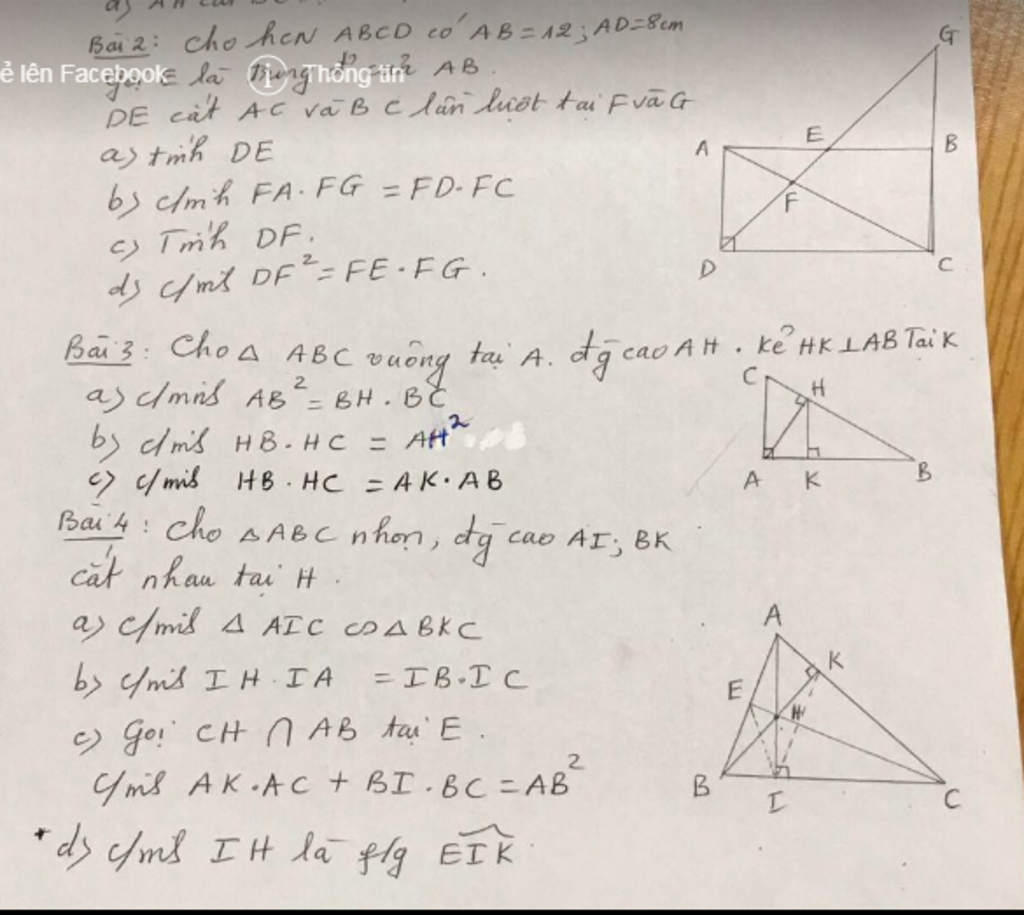 Bài 2: Cho hcN ABCD có AB=12; AD=8cm
ẻ lên Facebook
Thông tin
gọi E là AB.
DE cắt AC và B C lần lượt tại F và G
a) tính DE
b) c/mih FA.FG = FD.FC
c) Tính DF.
d) c/m's DF²=FE.FG.
G
A
E
B
F
D
C
Bài 3: Cho △ ABC vuông tại A. đg cao AH. kẻ HK⊥AB Tại K
a) c/mins AB²=BH.BC
b) c/m's HB.HC = AH²
c) c/mis HB.HC =AK.AB
C
H
A
K
B
Bài 4: Cho △ABC nhọn, đg cao AI; BK
cắt nhau tại H.
a) c/mis △ AIC ∽△ BKC
b) c/m's IH.IA =IB.IC
c) Gọi CH ∩ AB tại E.
c/m's AK.AC + BI.BC=AB²
* d) c/m's IH là f/g EIK
A
K
E
H
B
I
C